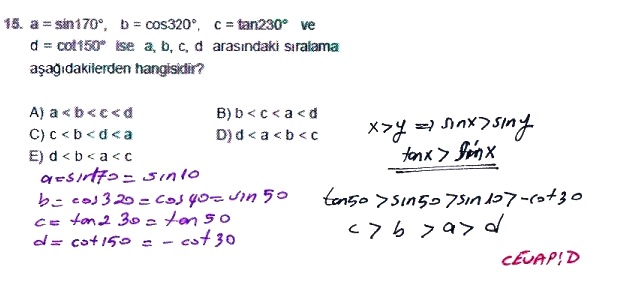 15. a = sin170°, b = cos320°, c = tan230° ve
d = cot150° ise a, b, c, d arasındaki sıralama
aşağıdakilerden hangisidir?
A) a < b < c < d
B) b < c < a < d
C) c < b < d < a
D) d < a < b < c
E) d < b < a < c
x>y => sinx>siny
tanx > sinx
a=sin170= sin10
b= cos320=cos40=sin50
c= tan230=tan50
d= cot150 = -cot30
tan50 >sin50>sin10>-cot30
c > b > a > d
CEVAP!D